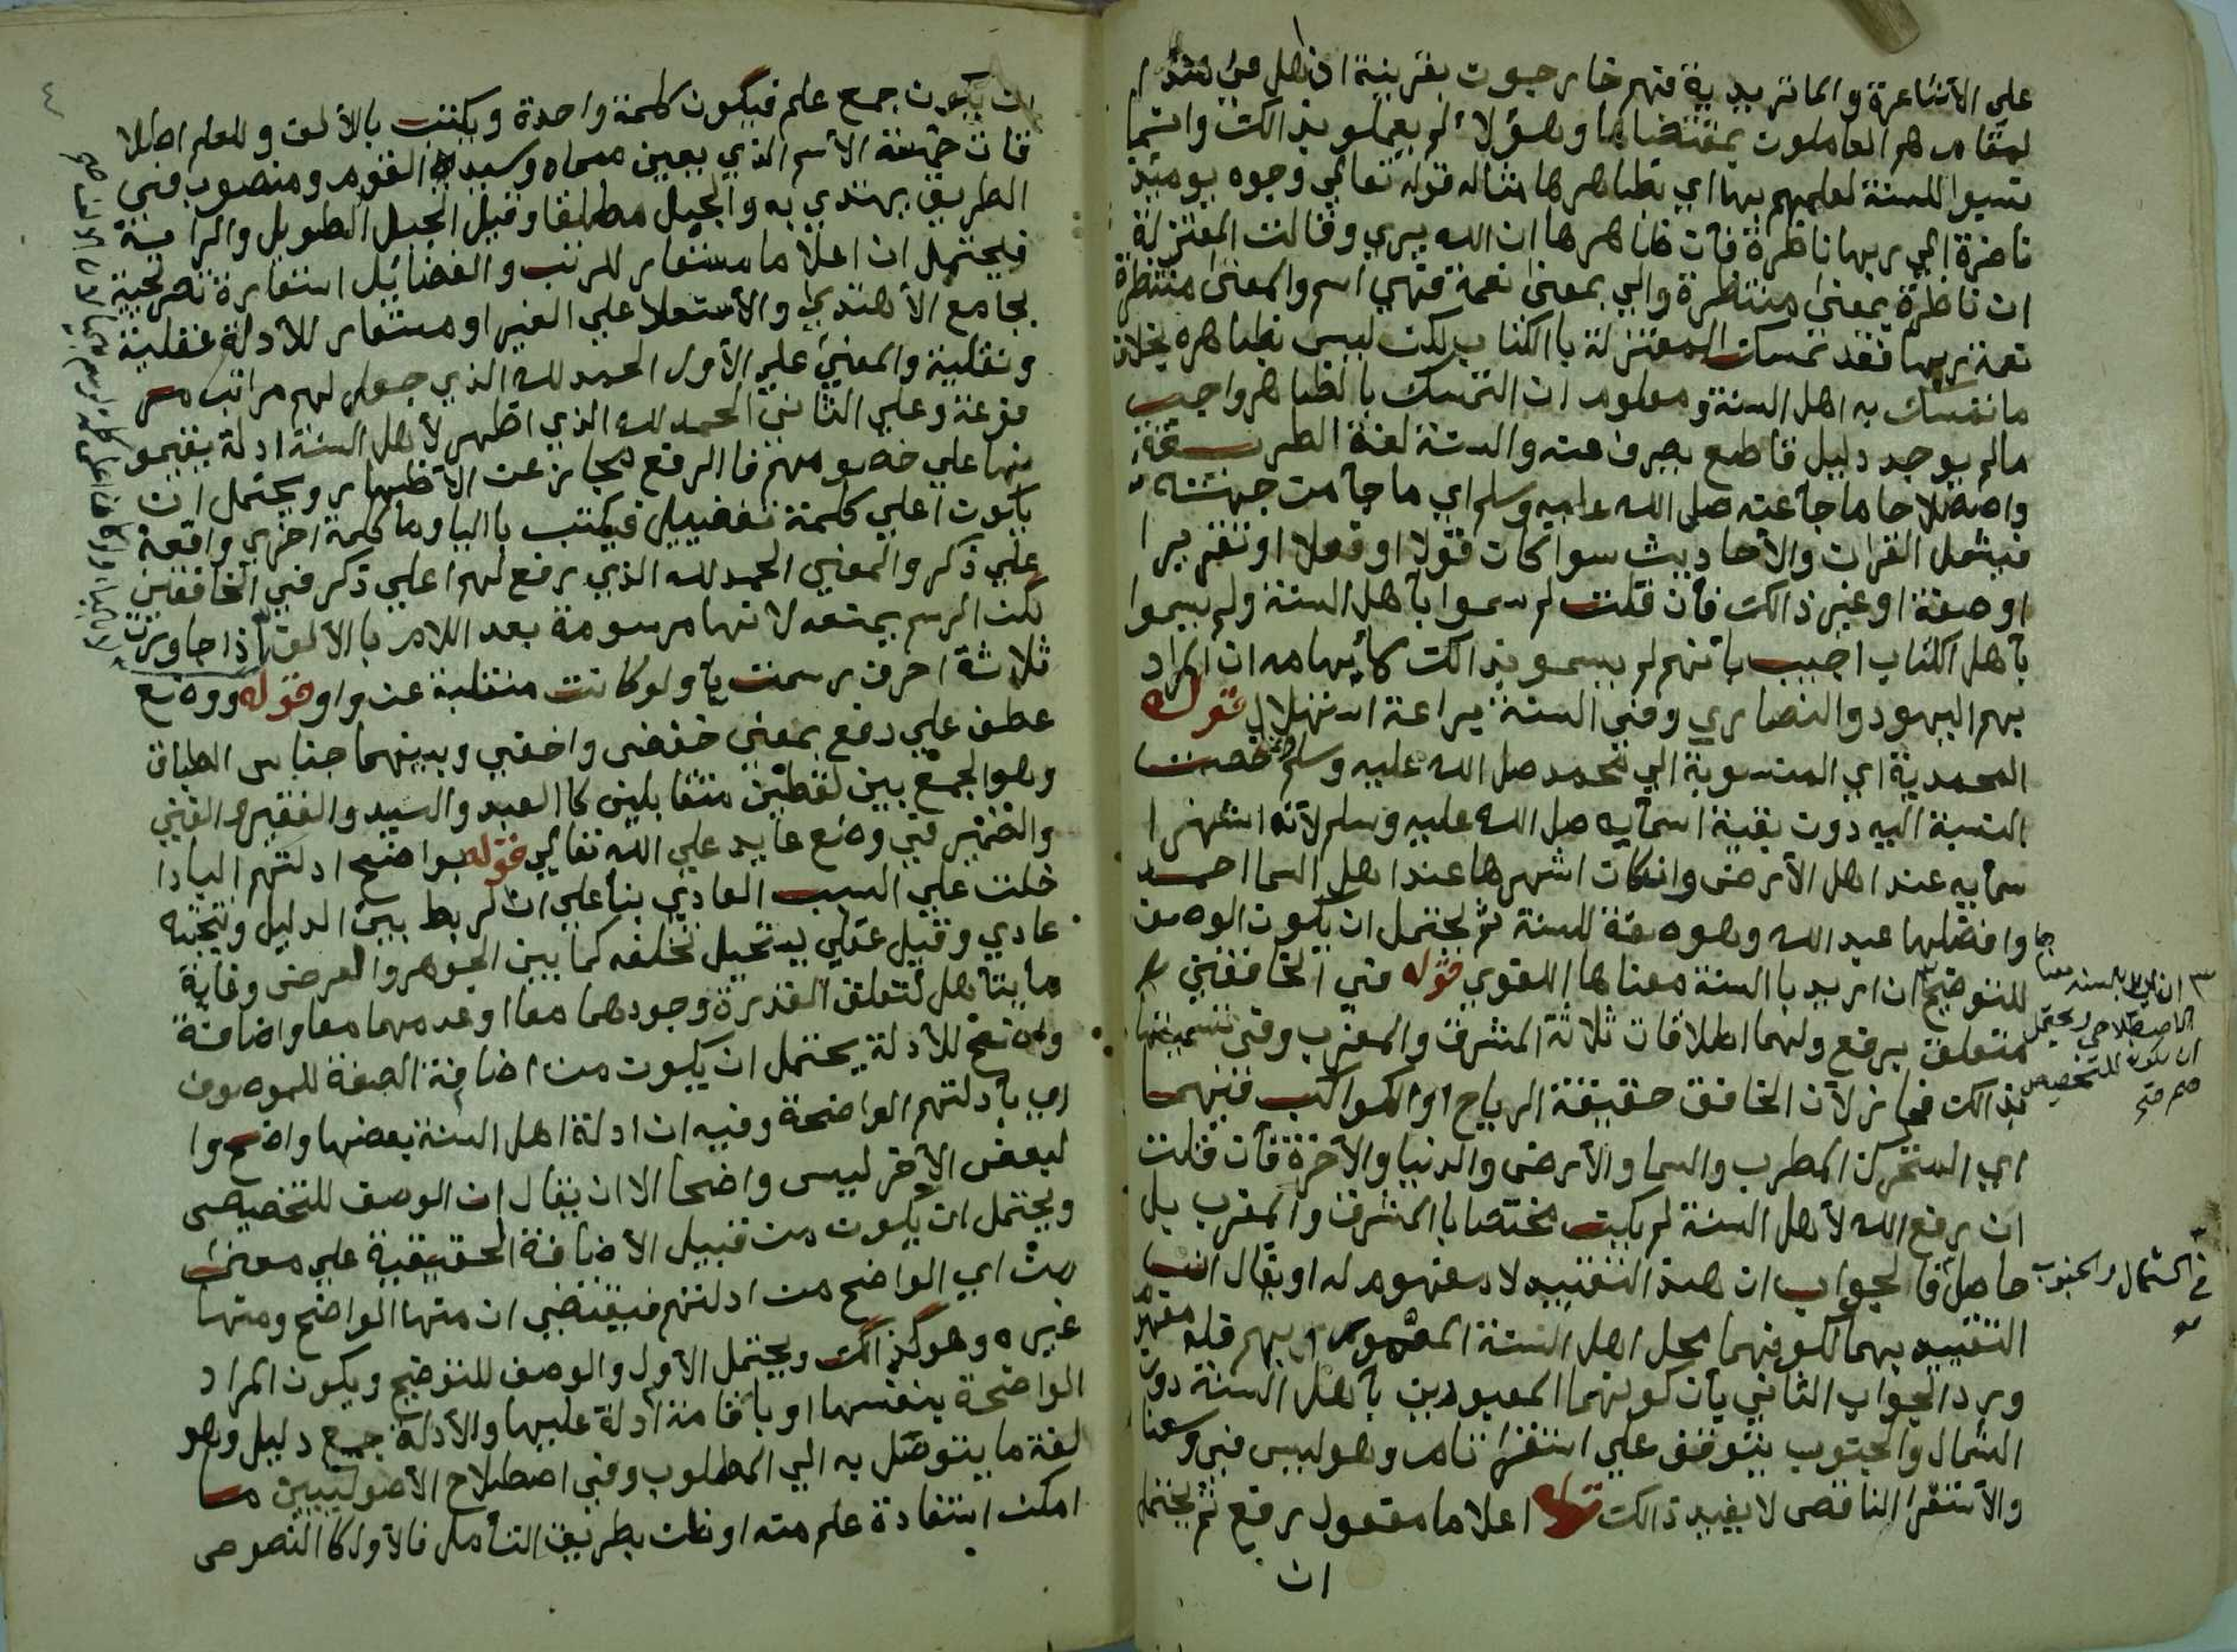 علي الأشاعرة والماتريدية فهم خارجون بقرينة ان اهل
لمقام هم العاملون بمقتضاها وهؤلاء لم يعملو بذالك وانما
نسبوا للسنة لعلمهم بها اي بظاهرها مثاله قوله تعالي وجوه يومئذ
ناضرة الي ربها ناظرة فأن ظاهرها ان الله يري وقالت المعتزلة
ان ناظرة بمعني منتظرة والي بمعني نعمة فهي اسم والمعني منتظرة
نعمة ربها فقد تمسكت المعتزلة باالكتاب لكن ليس بظاهره بخلاف
ما تمسك به اهل السنة ومعلوم ان التمسك بالظاهر واجب
مالم يوجد دليل قاطع يصرف عنه والسنة لغة الطريقة
واصطلاحا ما جأ عنه صلي الله عليه وسلم اي ما جأ من جهته
فيشمل القران والأحاديث سوا كان قولا او فعلا او تقريرا
او صفة او غير ذالك فأن قلت لم سموا بأهل السنة ولم يسموا
بأهل الكتاب اجيب بأنهم لم يسمو بذالك لأيهامه ان المراد
بهم اليهود والنصاري وفي السنة براعة استهلال قوله
المحمدية اي المنسوبة الي محمد صلي الله عليه وسلم وانما خصت
النسبة اليه دون بقية اسمأيه صلي الله عليه وسلم لأنه اشهر ا
سمأيه عند اهل الأرض وانكان اشهرها عند اهل السما احمد
وافضلها عبد الله وهو صفة للسنة ثم يحتمل ان يكون الوصف
للتوضيح ان اريد باالسنة معناها اللغوي قوله في الخافقين
متعلق برفع ولهما اطلاقات ثلاثة المشرق والمغرب وفي تسميتهما
بذالك مجاز لأن الخافق حقيقة الرياح او الكواكب فيهما
اي المتحرك المطرب والسما والأرض والدنيا والأخرة فأن قلت
ان رفع الله لأهل السنة لم يكن مختصا باالمشرق والمغرب بل
حاصل فالجواب ان هذا التقييد لا مفهوم له او يقال انما
التقييد بهما لكونهما محل اهل السنة
ويرد الجواب الثاني بأن كونهما المعمورين بأهل السنة دون
الشمال والجنوب يتوقف علي استقرا تام وهو ليس في وسعنا
والأستقرا الناقص لا يفيد ذالك قوله اعلاما مفعول رفع ثم يحتمل
ان
ان اريد بالسنه معنا ها
الاصطلاحي ويحتمل
ان يكون للتخصيص
في الشمال والجنوب
٤
ان يكون جمع علم فيكون كلمة واحدة ويكتب بالألف وللعلم اطلا
قات خمسة الأسم الذي يعين مسماه وسيد القوم ومنصوب في
الطريق يهتدي به والجبل مطلقا وقيل الجبل الطويل والراية
فيحتمل ان اعلاما مستعار للرتب والفضائل استعارة تصريحية
بجامع الأهتدي والأستعلا علي الغير او مستعار للأدلة عقلية
ونقلية والمعني علي الأول الحمد لله الذي جعل لهم مراتب مر
فوعة وعلي الثاني الحمد لله الذي اظهر لأهل السنة ادلة يقيمو
نها علي خصومهم فاالرفع مجاز عن الأظهار ويحتمل ان
يكون اعلي كلمة تفضييل فيكتب باليا وما كلمة اخري واقعة
علي ذكر والمعني الحمد لله الذي رفع لهم اعلي ذكر في الخافقين
لكن الرسم يمنعه لانها مرسومة بعد اللام باالألف اذا جاوزت
ثلاثة احرف رسمت يأ ولو كانت منقلبة عن واو قوله ووضع
عطف علي رفع بمعني خفض واخفي وبينهما جناس الطباق
وهو الجمع بين لفظين متقابلين كاالعبد والسيد والفقير والغني
والضمير في وضع عايد علي الله تعالي قوله بواضح ادلتهم البادا
خلت علي السبب العادي بنأ علي ان الربط بين الدليل ونتيجته
عادي وقيل عقلي يستحيل تخلفه كما بين الجوهر والعرض وغاية
ما يتأهل لتعلق القدرة وجودهما معا او عدمهما معا واضافة
واضح للأدلة يحتمل ان يكون من اضافة الصفة للموصوف
اي بأدلتهم الواضحة وفيه ان ادلة اهل السنة بعضها واضح وا
لبعض الأخر ليس واضحا الا ان يقال ان الوصف للتخصيص
ويحتمل ان يكون من قبيل الأضافة الحقيقية علي معني
من اي الواضح من ادلتهم فيقتضي ان منها الواضح ومنها
غيره وهو كذالك ويحتمل الأول والوصف للتوضيح ويكون المراد
الواضحة بنفسها او بأقامة أدلة عليها والأدلة جمع دليل وهو
لغة ما يتوصل به الي المطلوب وفي اصطلاح الأصوليين ما
امكن استفادة علم منه او ظن بطريق التأمل فالأول كاالنصوص